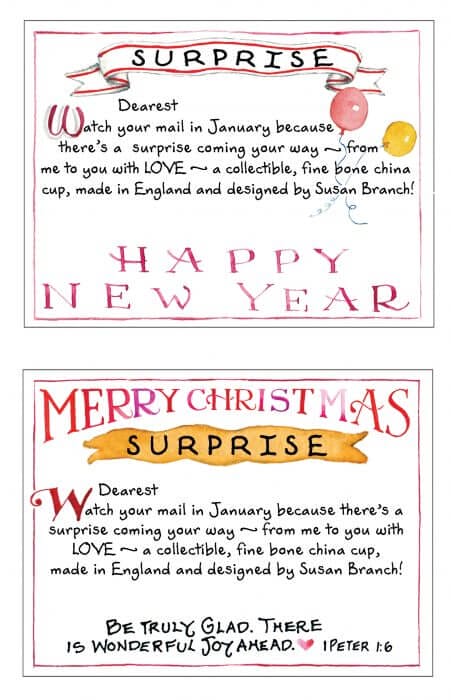 SURPRISE
Dearest
Watch your mail in January because
there's a surprise coming your way ~ from
me to you with LOVE ~ a collectible, fine bone china
cup, made in England and designed by Susan Branch!
HAPPY
NEW YEAR
MERRY CHRISTMAS
SURPRISE
Dearest
Watch your mail in January because there's a
surprise coming your way ~ from me to you with
LOVE ~ a collectible, fine bone china cup,
made in England and designed by Susan Branch!
BE TRULY GLAD. THERE
IS WONDERFUL JOY AHEAD. ♥ 1 PETER 1:6